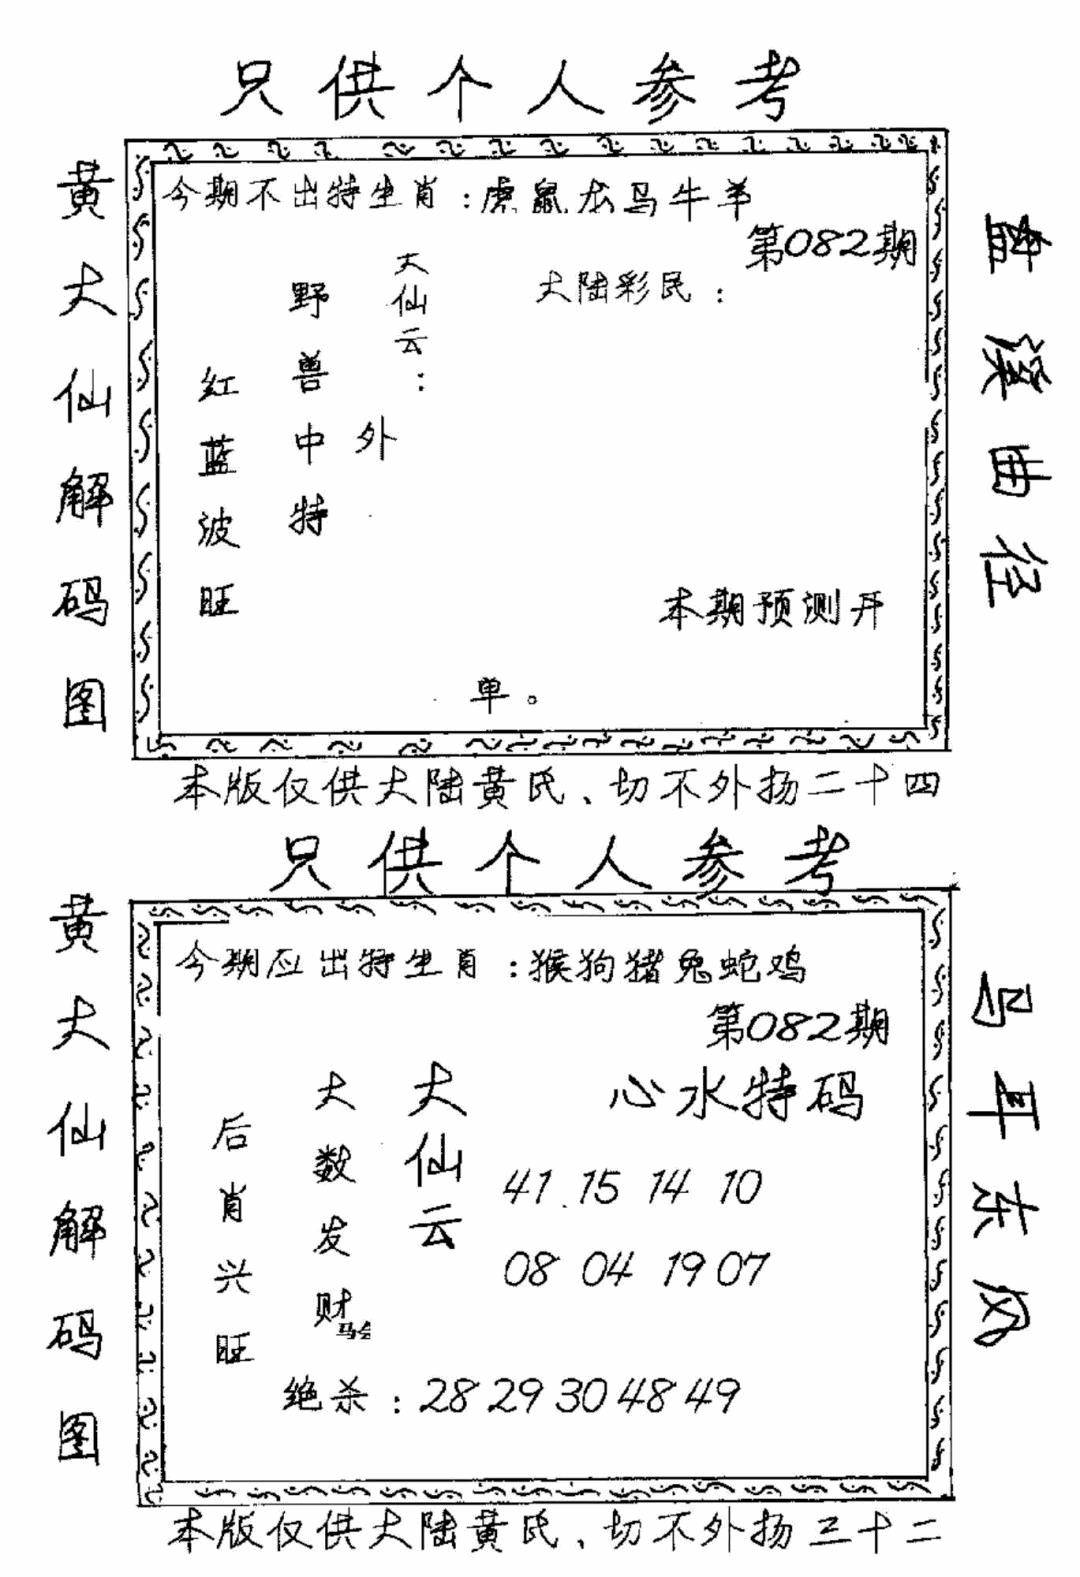 只供个人参考
黄大仙解码图
今期不出特生肖：虎鼠龙马牛羊
第082期
大陆彩民：
大仙云：
野兽中特
外
红蓝波旺
本期预测开
单。
盘溪曲径
本版仅供大陆黄氏、切不外扬二十四
只供个人参考
黄大仙解码图
今期应出特生肖：猴狗猪兔蛇鸡
第082期
心水特码
大仙云
大数发财
马会
后肖兴旺
41.15 14 10
08 04 19 07
绝杀：28 29 30 48 49
马耳东风
本版仅供大陆黄氏、切不外扬三十二